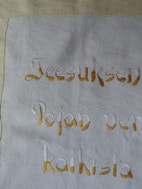 Jeesuksen
Pojan ver
kaikista